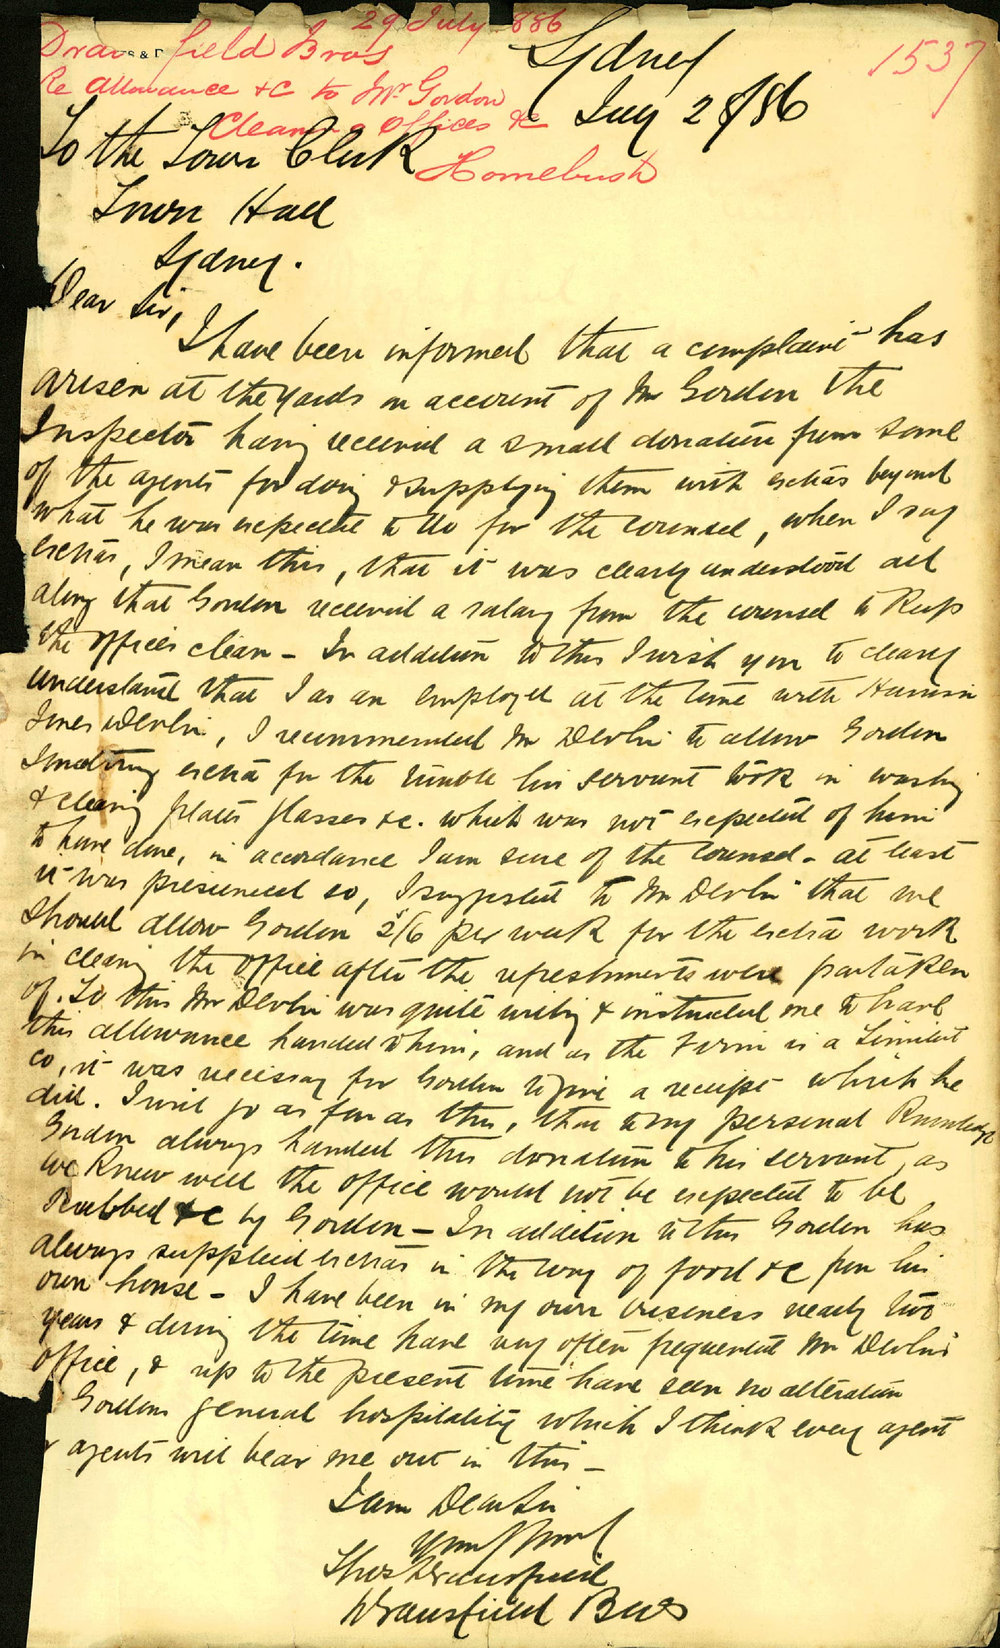 29 July 1886
Dransfield Bros
Re allowance &c to Mr Gordon
Cleaning Offices &c
Homebush
1537
Sydney
July 28/86
To the Town Clerk
Town Hall
Sydney.
Dear Sir,
I have been informed that a complaint has
arisen at the yards on account of Mr Gordon the
Inspector having received a small donation from some
of the agents for doing & supplying them with extras beyond
what he was expected to do for the Counsel, when I say
extras, I mean this, that it was clearly understood all
along that Gordon received a salary from the counsel to keep
the offices clean – In addition to this I wish you to clearly
understand that I as an employee at the time with Harrison
Jones & Devlin, I recommended Mr Devlin to allow Gordon
Something extra for the trouble his servant took in washing
& cleaning plates glasses &c. which was not expected of him
to have done, in accordance I am sure of the Counsel – at least
it was presumed so, I suggested to Mr Devlin that we
should allow Gordon 2/6 per week for the extra work
in cleaning the office after the refreshments were partaken
of. To this Mr Devlin was quite willing & instructed me to have
this allowance handed to him, and as the Firm is a Limited
Co, it was necessary for Gordon to give a receipt which he
did. I will go as far as this, that to my personal Knowledge
Gordon always handed this donation to his servant, as
we knew well the office would not be expected to be
Scrubbed &c by Gordon – In addition to this Gordon has
always supplied extras in the way of food &c from his
own house – I have been in my own business nearly two
years & during the time have very often frequented Mr Devlins
office, & up to the present time have seen no alteration
Gordons general hospitality which I think every agent
agents will bear me out in this –
I am Dear Sir
Yours truly
Thos Dransfield
Dransfield Bros